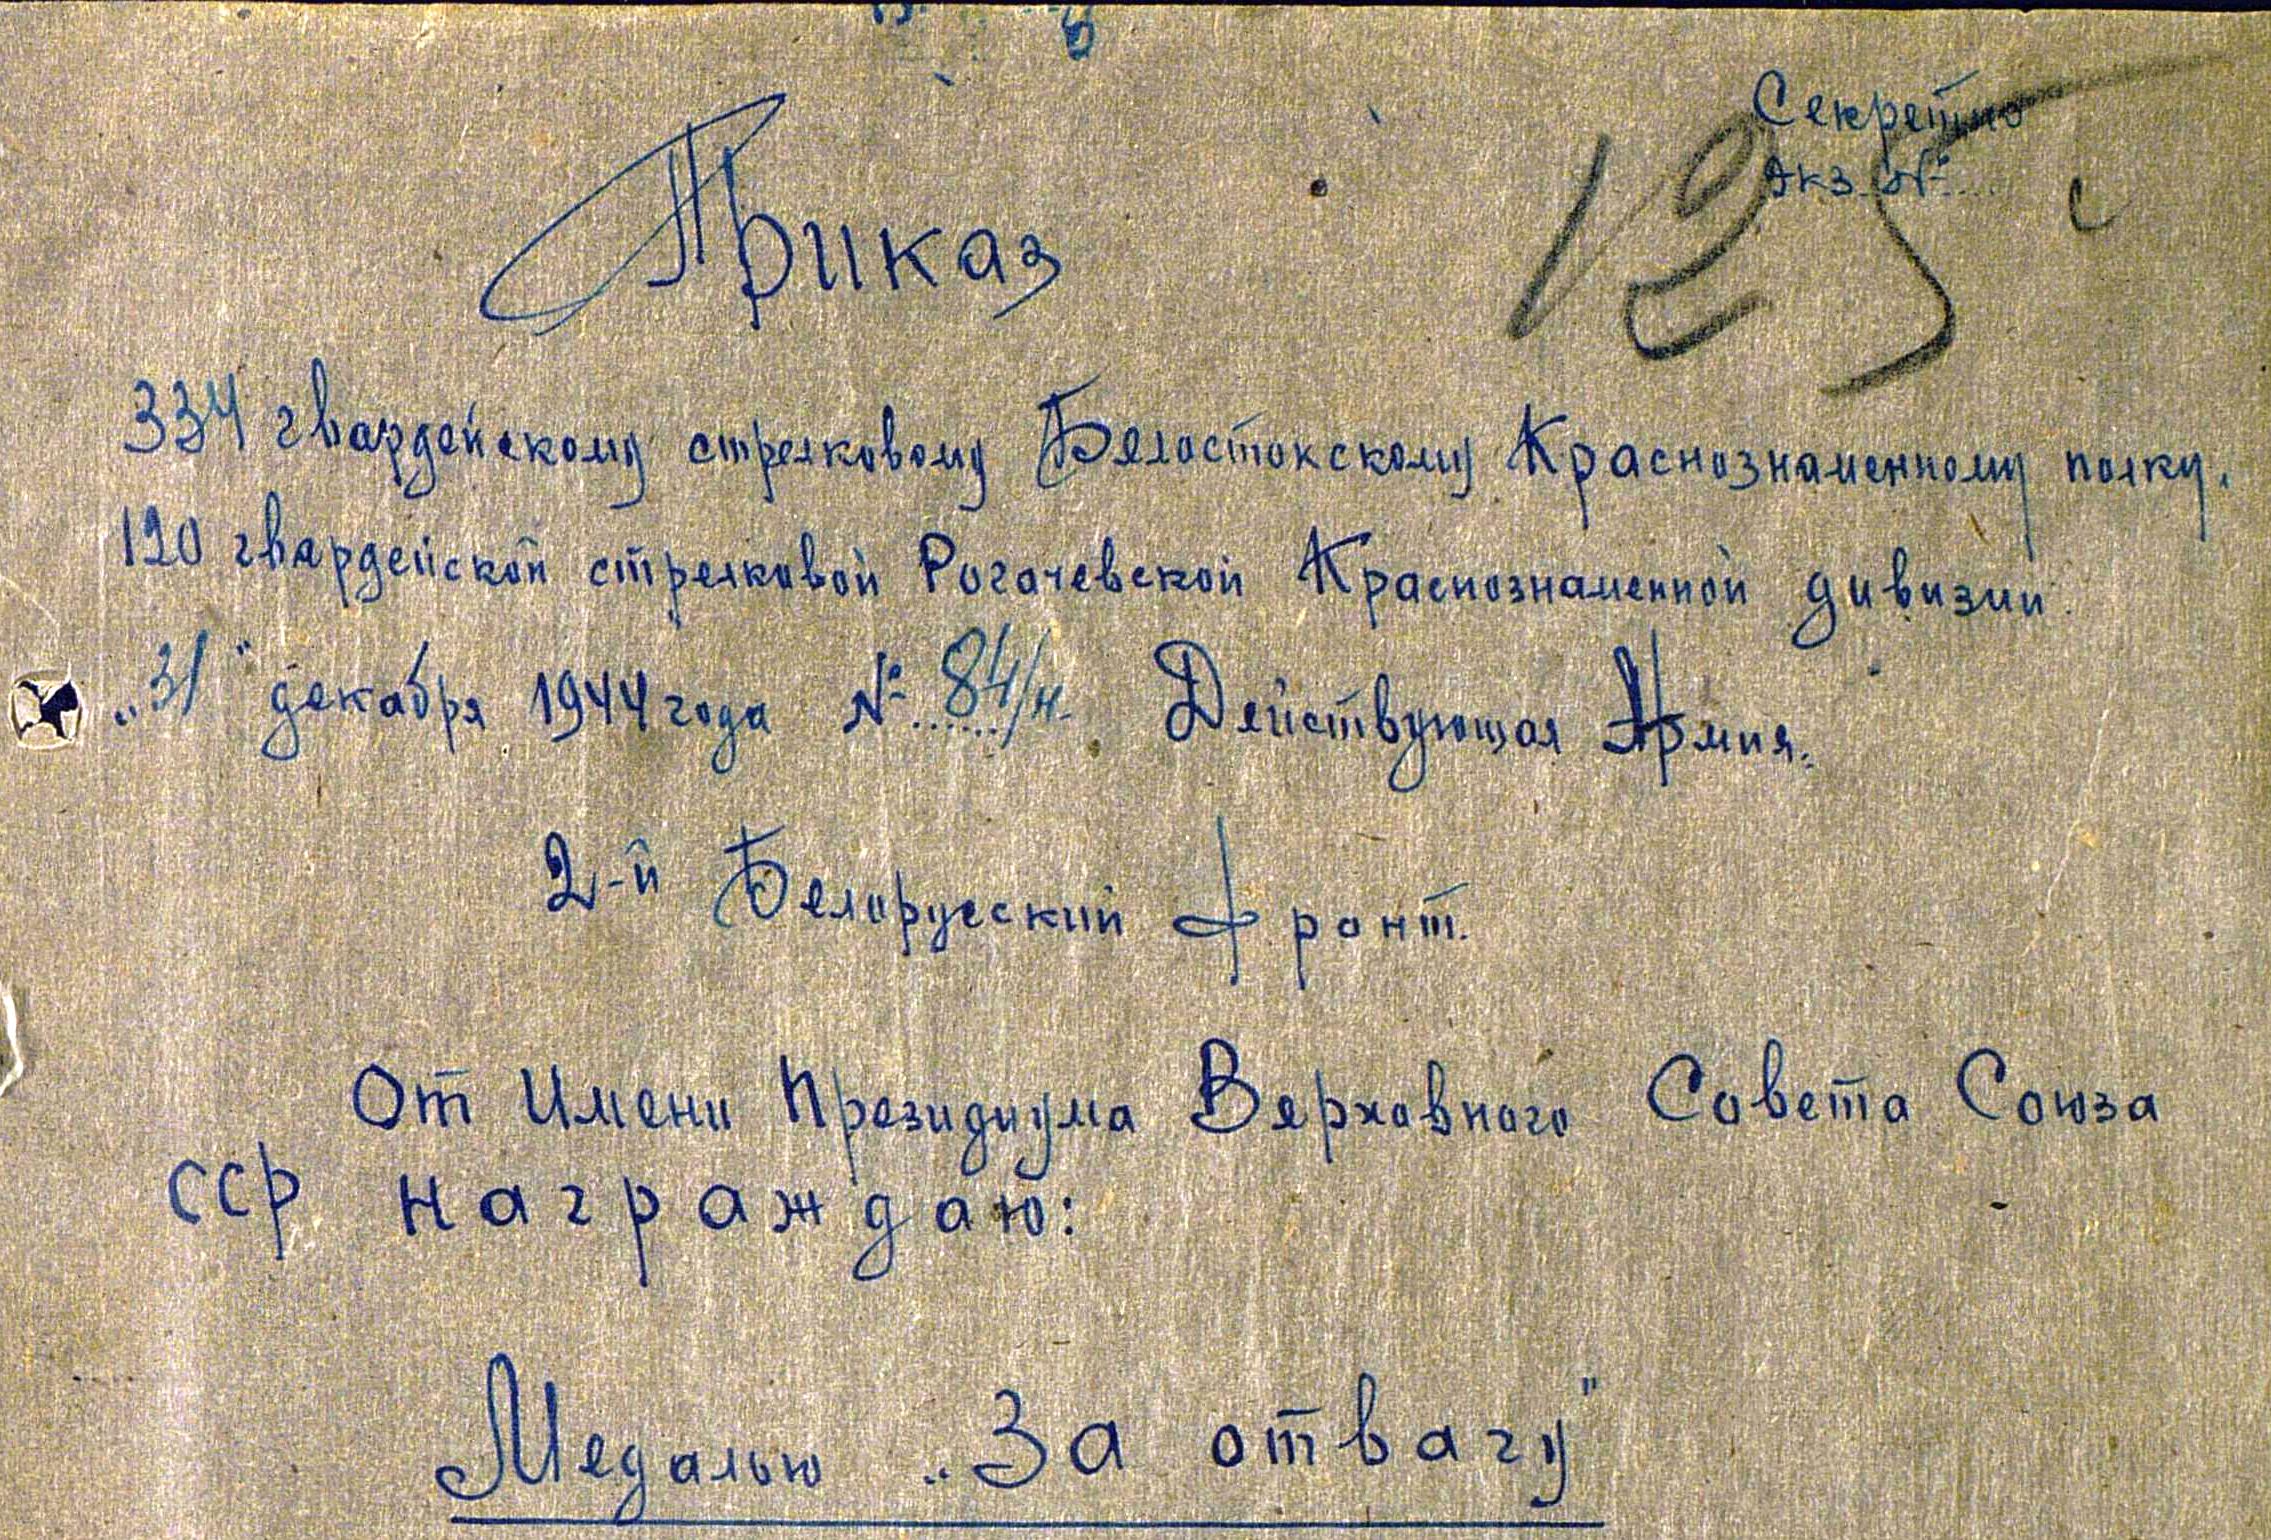 Секретно
Экз. №....
125
Приказ
334 гвардейскому стрелковому Белостокскому Краснознаменному полку.
120 гвардейской стрелковой Рогачевской Краснознаменной дивизии.
„31" декабря 1944 года №......84/н. Действующая Армия.
2-й Белорусский фронт.
От Имени Президиума Верховного Совета Союза
ССР награждаю:
Медалью „За отвагу"